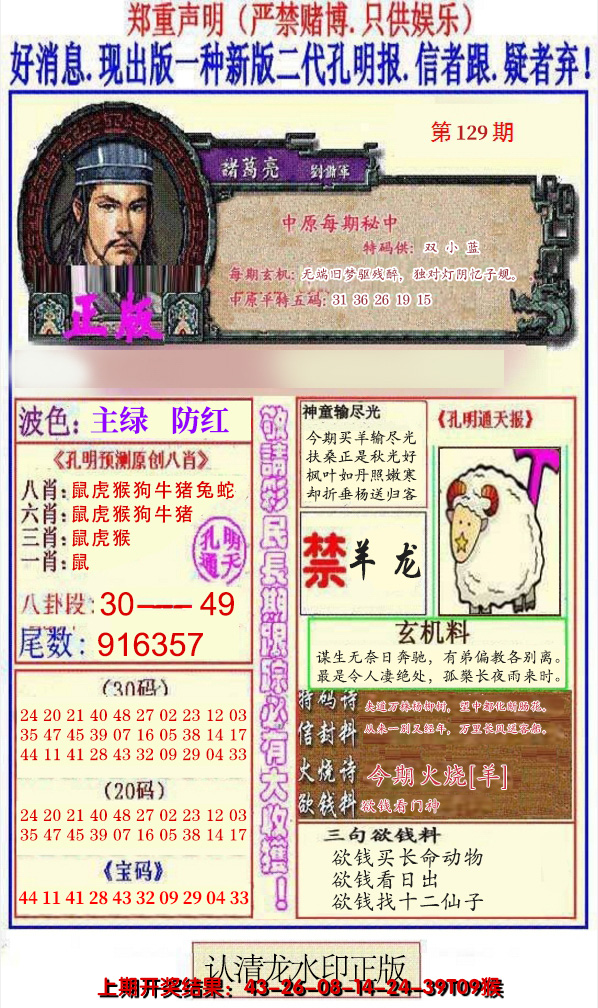 郑重声明（严禁赌博.只供娱乐）
好消息.现出版一种新版二代孔明报.信者跟.疑者弃！
第129期
諸葛亮 劉備軍
中原每期秘中
特码供：双 小 蓝
每期玄机：无端旧梦驱残醉，独对灯阴忆子规。
中原平特五码：31 36 26 19 15
正版
波色：主绿 防红
《孔明预测原创八肖》
八肖：鼠虎猴狗牛猪兔蛇
六肖：鼠虎猴狗牛猪
三肖：鼠虎猴
一肖：鼠
孔明
通天
八卦段：30—— 49
尾数：916357
（30码）
24 20 21 40 48 27 02 23 12 03
35 47 45 39 07 16 05 38 14 17
44 11 41 28 43 32 09 29 04 33
（20码）
24 20 21 40 48 27 02 23 12 03
35 47 45 39 07 16 05 38 14 17
《宝码》
44 11 41 28 43 32 09 29 04 33
敬請彩民長期跟踪必有大收獲！
神童输尽光
今期买羊输尽光
扶桑正是秋光好
枫叶如丹照嫩寒
却折垂杨送归客
《孔明通天报》
禁羊 龙
玄机料
谋生无奈日奔驰，有弟偏教各别离。
最是令人凄绝处，孤檠长夜雨来时。
特码诗
夹道万株杨柳树，望中都化断肠花。
信封料
从来一别又经年，万里长风送客船。
火烧诗
今期火烧[羊]
欲钱料
欲钱看门神
三句欲钱料
欲钱买长命动物
欲钱看日出
欲钱找十二仙子
认清龙水印正版
上期开奖结果：43-26-08-14-24-39T09猴